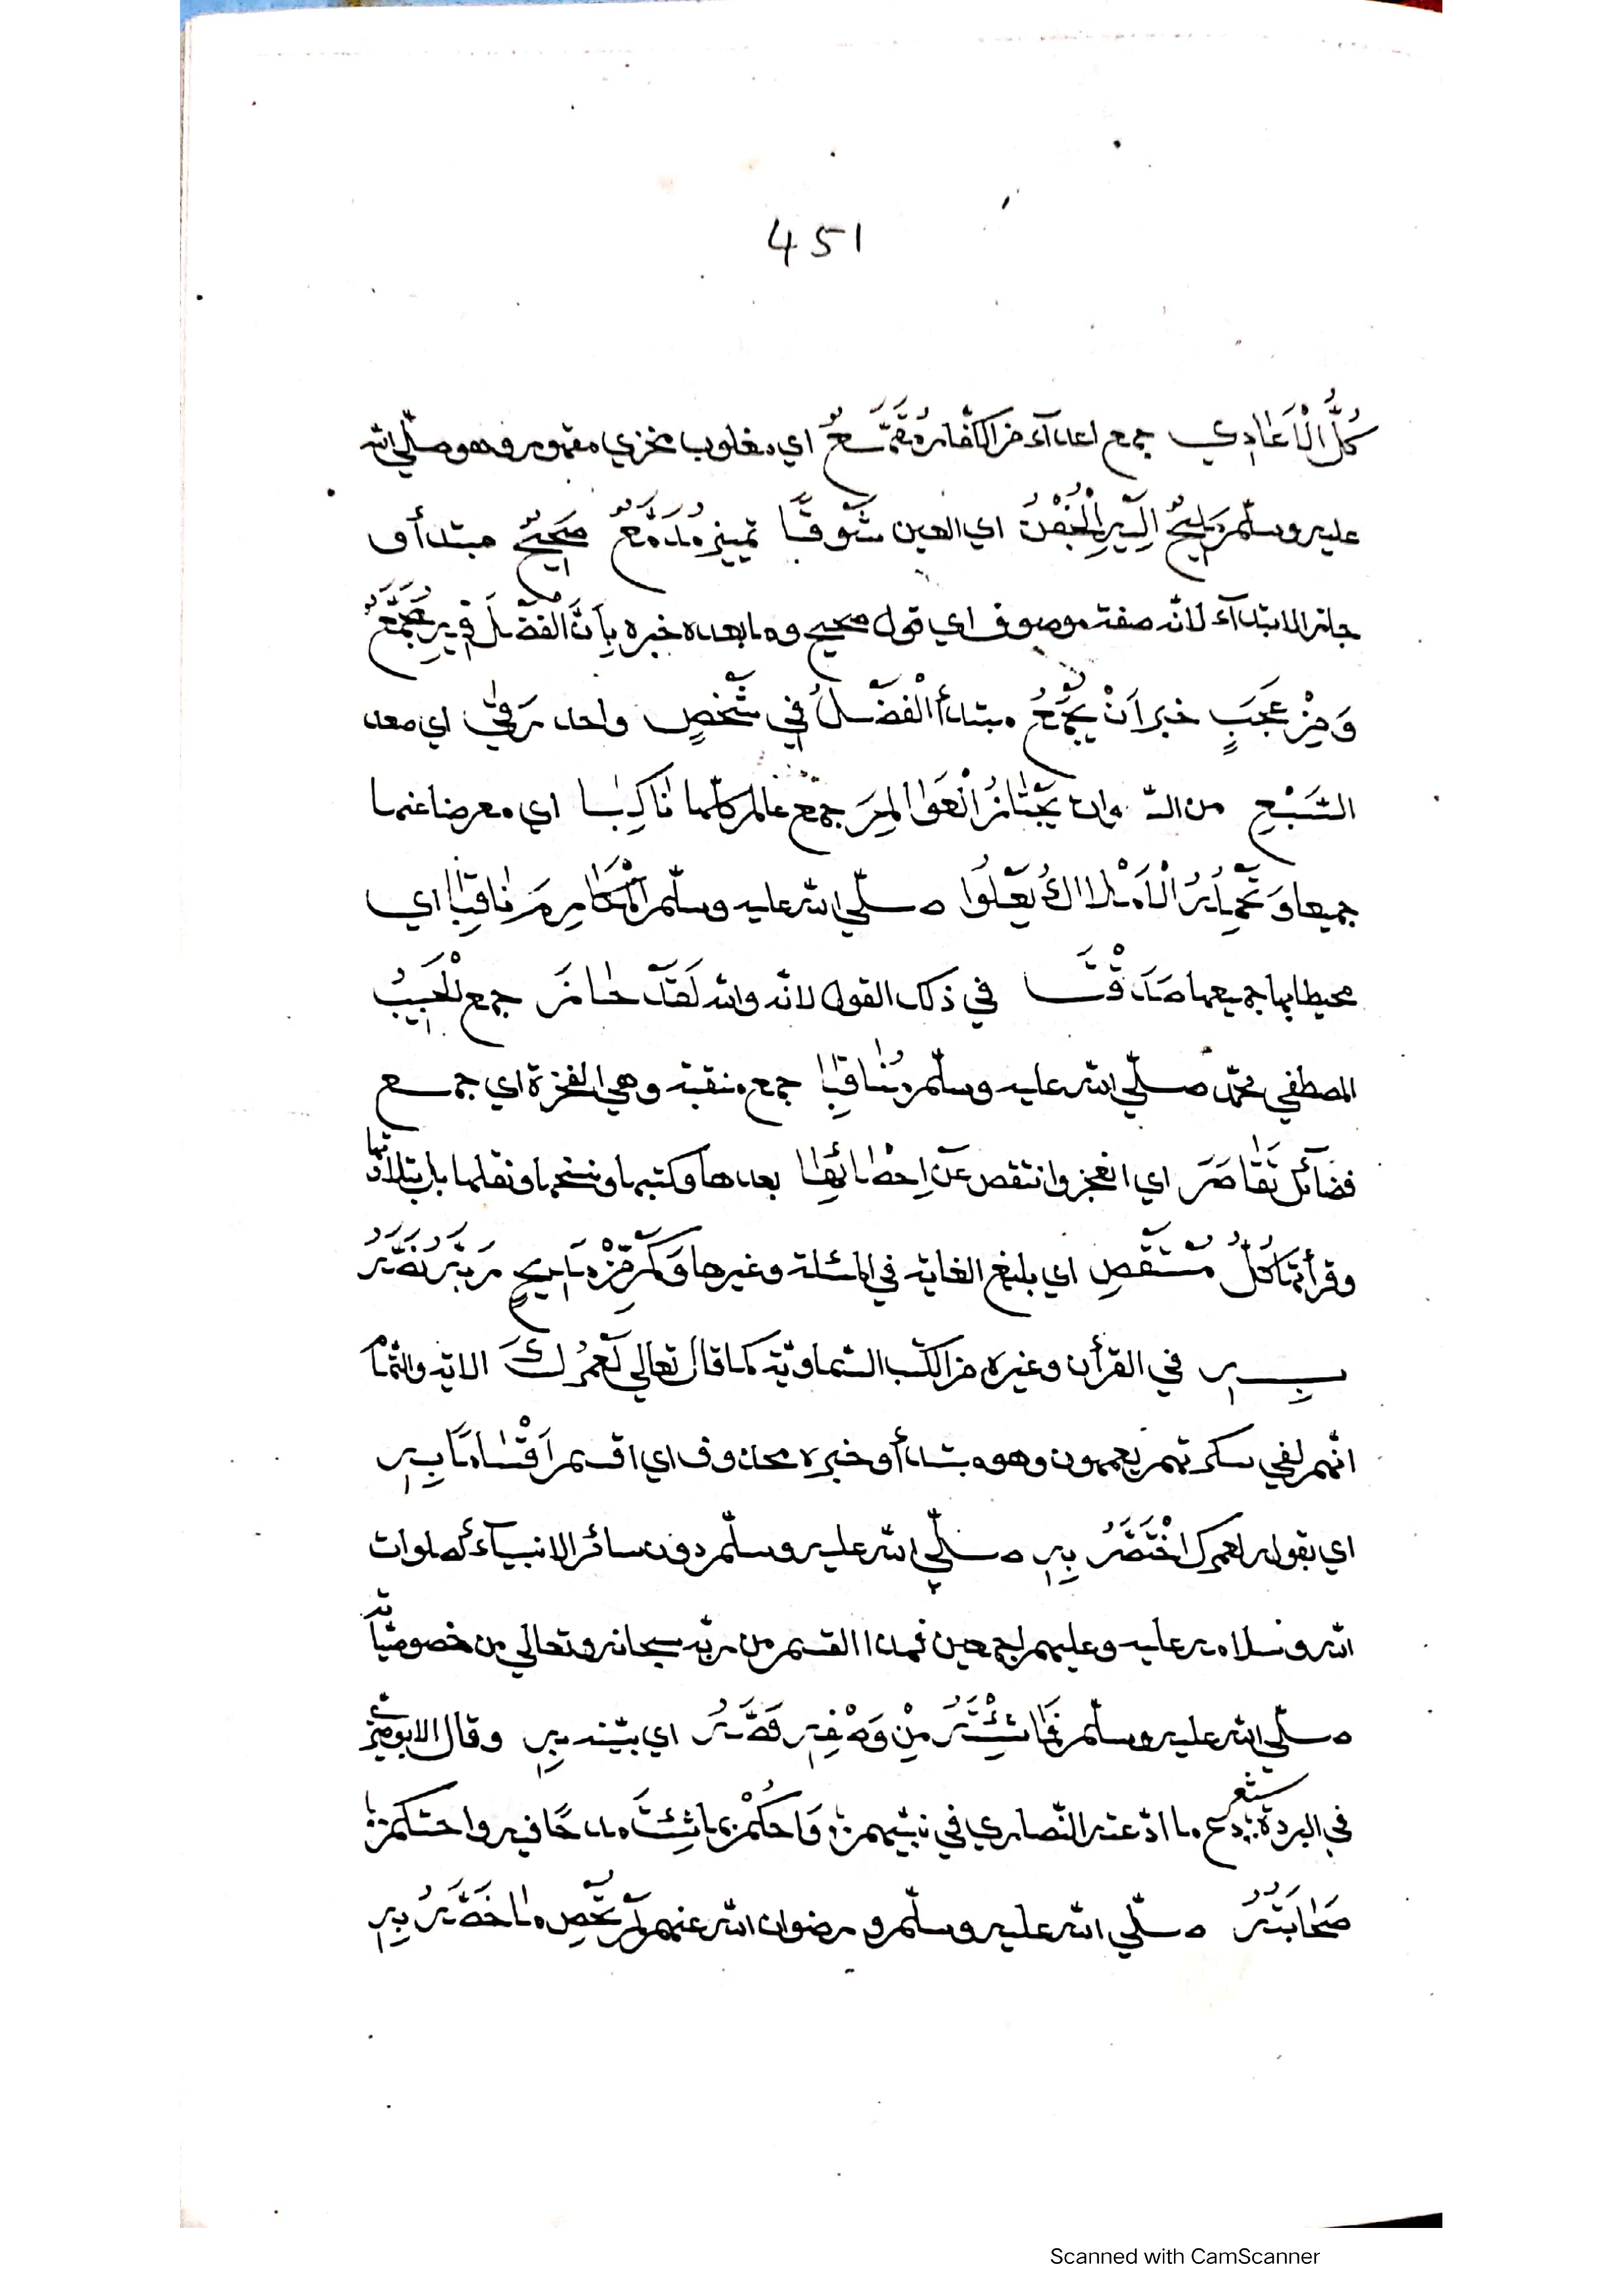 451
كُلُّ الْاَعَادِي جمع اعداء من الكفار مُقَمَّعُ اي مغلوب مخزي مقهور وهو صلّي الله
عليه وسلّم مَلِيحُ الجَفْنُ اي العين شَوْقًا تمييز مُدَمَّعُ صَحِيحٌ مبتدأ و
جاز الابتدآء لانّه صفة موصوف اي قول صحيح وما بعده خبره بِاَنَّ الْفَضْلَ فِيهِ مُجَمَّعُ
وَمِنْ عَجَبٍ خبر اَنْ يُجْمَعُ مبتدأ الْفَضْلُ فِي شَخْصٍ واحد رَقِيَ اي صعد
السَّبْعِ من يَجْتَازُ الْعَوَالِمَ جمع عالم كلّها نَاكِبًا اي معرضا عنها
جميعا وَ الْاَمْلَاكُ يَعْلُوا صلّي الله عليه وسلّم مَنَاقِبًا اي
محيطا بها جميعها صَدَقْتَ في ذلك القول لانه والله لَقَدْ حَازَ جمع الْحَبِيبُ
المصطفي محمّد صلّي الله عليه وسلّم مَنَاقِبًا جمع منقبة وهي المفخرة اي جمع
فضآئل تَقَاصَرَ اي انعجز وانتقص عَنْ اِحْصَائِهَا بعدها وكتبها ونسخها ونقلها
وقرأتها كُلُّ مُسْتَقْصٍ اي بليغ الغاية في المسئلة وغيرها وَكَمْ مِنْ مَدِيحٍ رَبُّهُ نَصَّهُ
بِهِ في القرأن وغيره من الكتب السّماويّة كما قال تعالي لَعَمْرُكَ الاية
انّهم لفي سكرتهم يعمهون وهو مبتدأ وخبره محذوف اي اقسم اَقْسَامًا بِهِ
اي بقوله لعمرك اخْتَصَّهُ بِهِ صلّي الله عليه وسلّم دون سائر الانبيآء صلوات
الله وسلامه عليه وعليهم اجمعين فهذا القسم من ربّه سبحانه وتعالي من خصوصيّاته
صلّي الله عليه وسلّم فَمَا شِئْتَهُ مِنْ وَصْفِهِ قُصَّهُ اي بيّنه بِهِ وقال الابوصيري
في البردة شعر دع ما ادّعته النّصاري في نبيّهم وَاحْكُمْ بِمَا شِئْتَ مدحًا فيه واحتكم
صَحَابَتُهُ صلّي الله عليه وسلّم و رضوان الله عنهم لَمْ تُحْصِ مَا خَصَّهُ بِهِ
Scanned with CamScanner